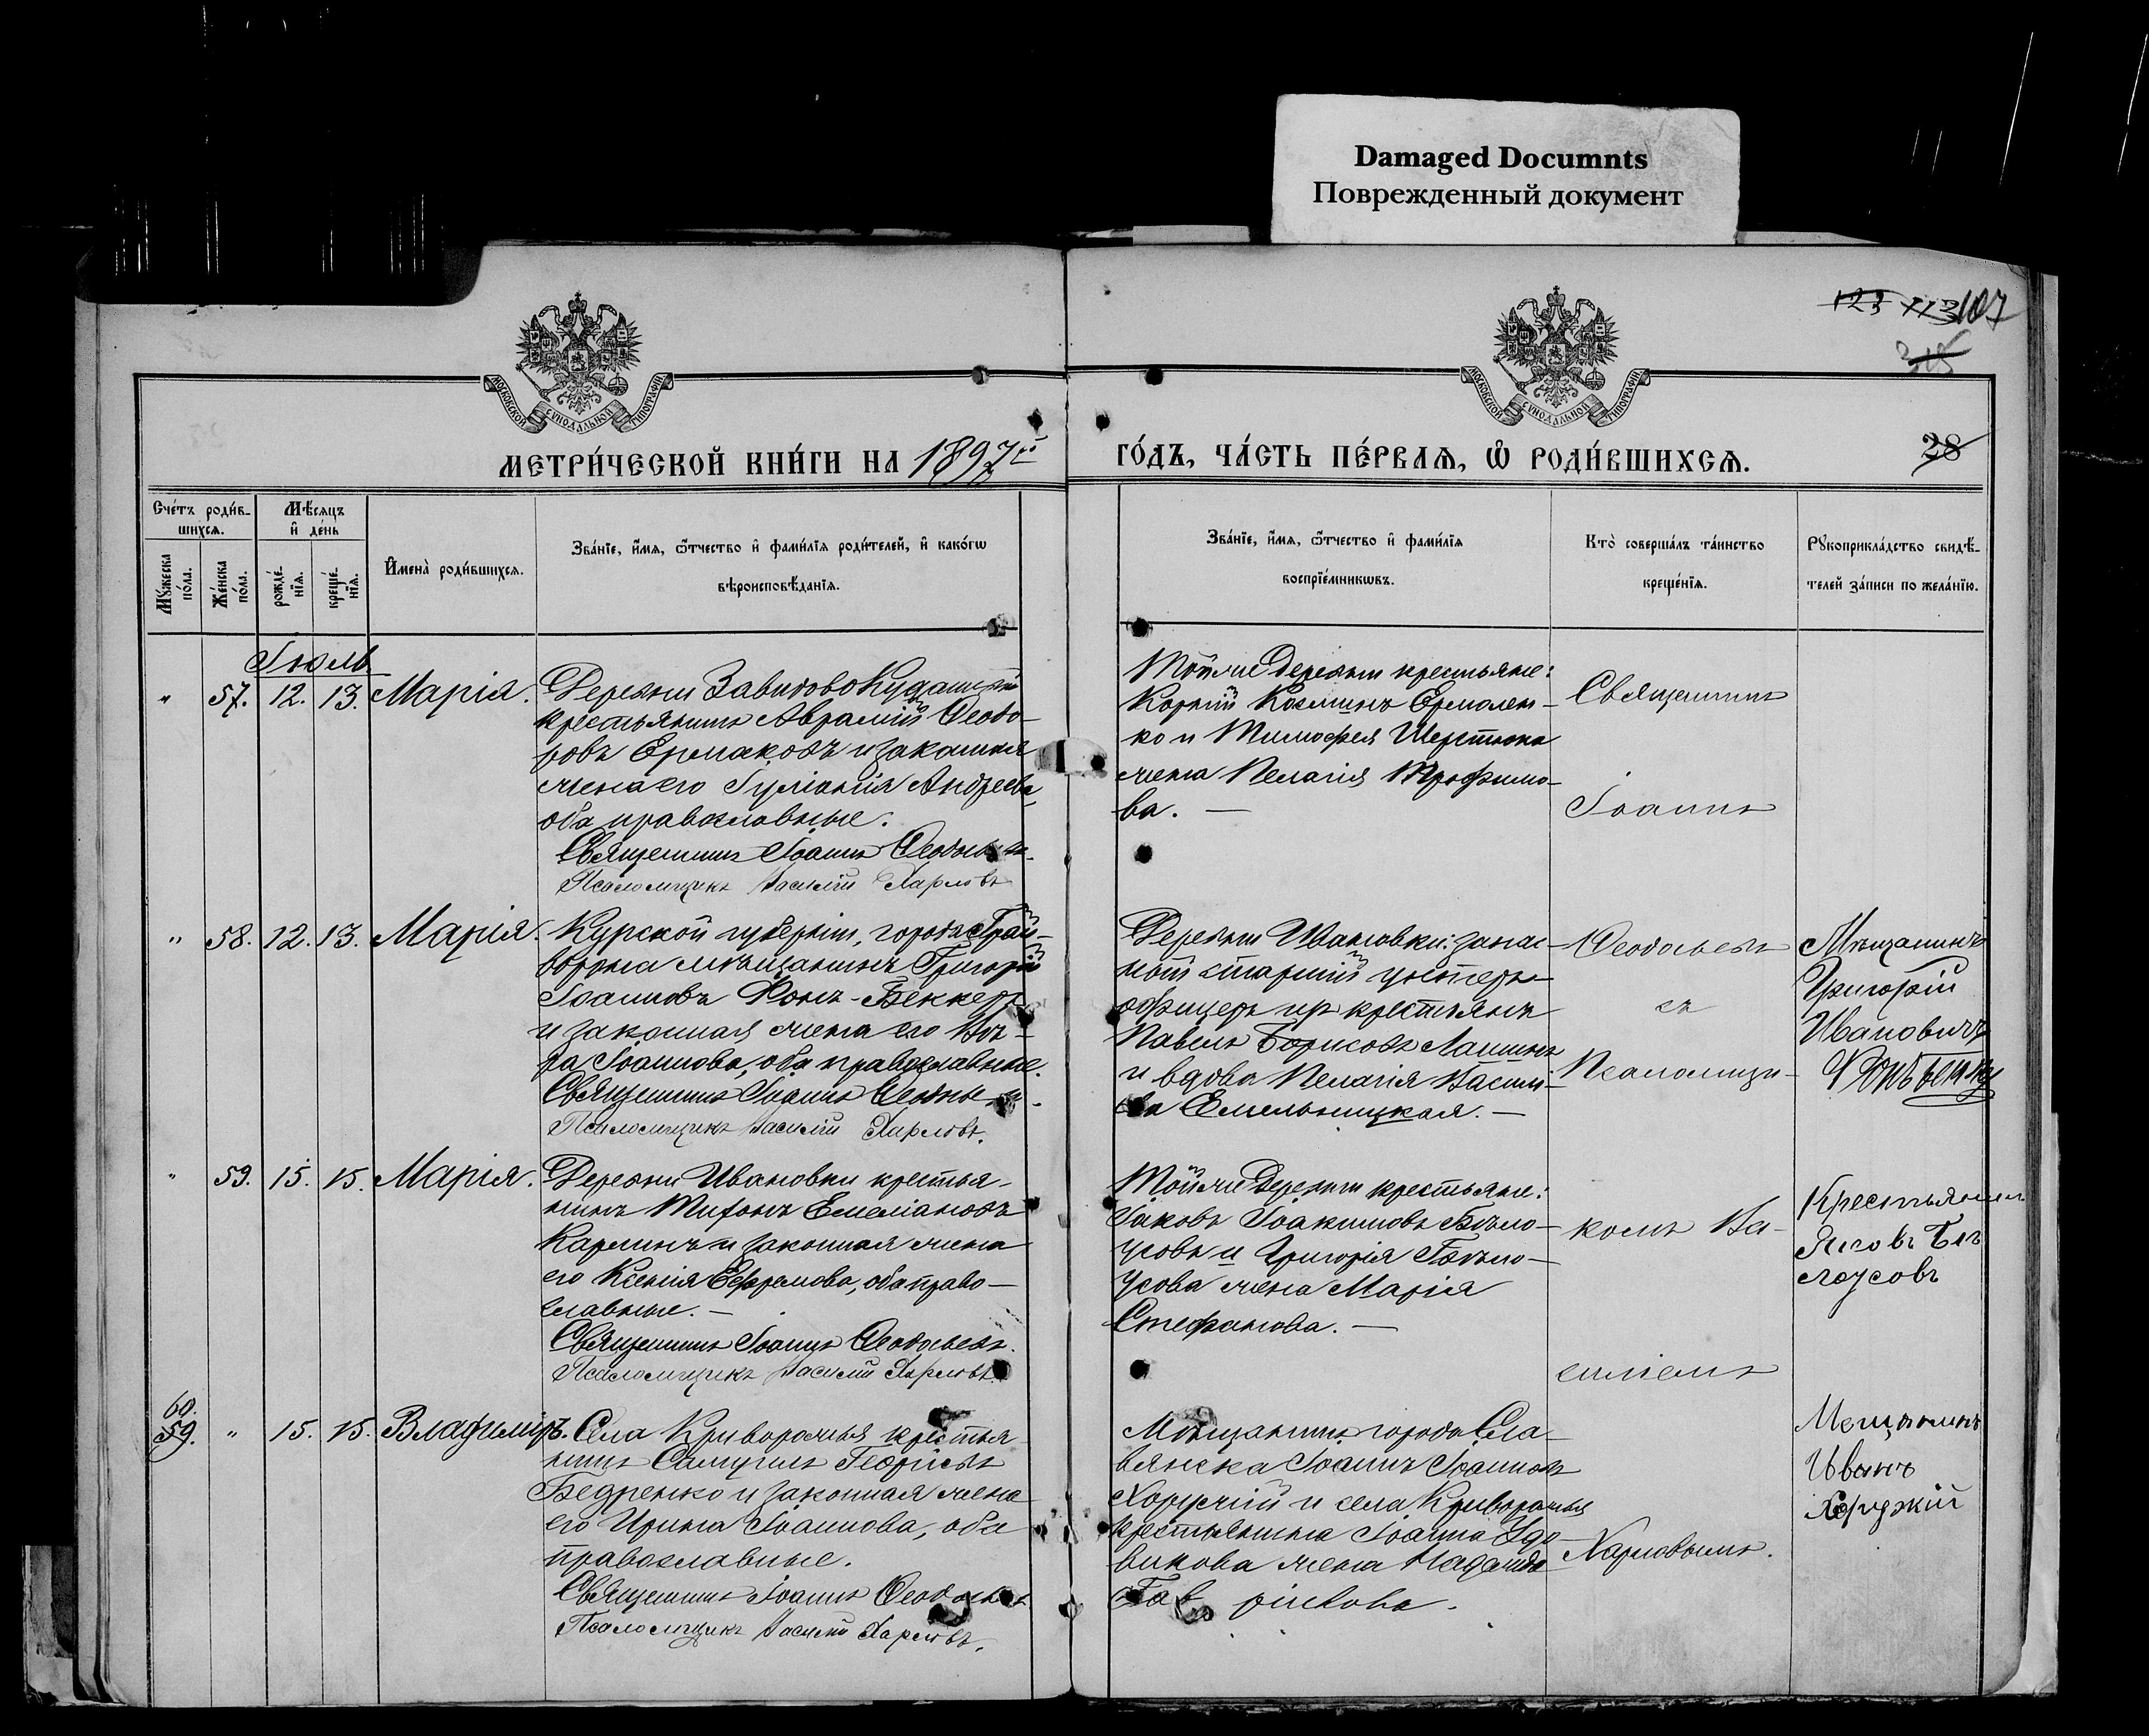 Damaged Documnts
Поврежденный документ
123 113 107
315
МОСКОВСКОЙ СѴНОДАЛЬНОЙ ТИПОГРАФІИ
МОСКОВСКОЙ СѴНОДАЛЬНОЙ ТИПОГРАФІИ
МЕТРИ́ЧЕСКОЙ КНИ́ГИ НА 1897й
ГО́ДЪ, ЧА́СТЬ ПЕ́РВАѦ, Ѡ РОДИ́ВШИХСѦ.
28
Сче́тъ роди́в-
шихсѧ.
Мѣ́сѧцъ
и҆ де́нь
Мꙋ́жеска
по́ла.
Же́нска
по́ла.
рожде́-
нїѧ.
креще́-
нїѧ.
И҆мена̀ роди́вшихсѧ.
Зва́нїе, и҆́мѧ, ѻ҆́тчество и҆ фами́лїѧ роди́телей, и҆ како́гѡ
вѣроисповѣ́данїѧ.
Зва́нїе, и҆́мѧ, ѻ҆́тчество и҆ фами́лїѧ
воспрїе́мникѡвъ.
Кто̀ соверша́лъ та́инство
креще́нїѧ.
Рꙋкоприкла́дство свидѣ́-
телей за́писи по жела́нїю.
Іюль
" 57. 12. 13. Марія.
Деревни Завидово Кудашевой
крестьянинъ Аврамій Ѳеодо-
ровъ Ермаковъ и законная
жена его Іуліанія Андреева,
оба православные.
Священникъ Іоаннъ Ѳеодосьевъ.
Псаломщикъ Василій Харловъ
Тойже деревни крестьяне:
Корній Косминъ Ермолен-
ко и Тимофея Шерстюка
жена Пелагія Трофимо-
ва. —
Священникъ
Іоаннъ
" 58. 12. 13. Марія.
Курской губерніи, города Грай-
ворона мѣщанинъ Григорій
Іоанновъ Фонъ-Беккеръ
и законная жена его Вѣ-
ра Іоаннова, оба православные.
Священникъ Іоаннъ Ѳеодосьевъ.
Псаломщикъ Василій Харловъ.
Деревни Ивановки: запас-
ный старшій унтеръ-
офицеръ изъ крестьянъ
Павелъ Борисовъ Лашинъ
и вдова Пелагія Василі-
ева Емельницкая. —
Ѳеодосьевъ
съ
Псаломщи-
Мѣщанинъ
Григорій
Ивановичъ
" 59. 15. 15. Марія.
Деревни Ивановки крестья-
нинъ Тифонъ Емеліановъ
Карлинъ и законная жена
его Ксенія Ефремова, оба право-
славные. —
Священникъ Іоаннъ Ѳеодосьевъ.
Псаломщикъ Василій Харловъ.
Тойже деревни крестьяне:
Іаковъ Іоакимовъ Бѣло-
усовъ и Григорія Бѣло-
усова жена Марія
Стефанова. —
комъ Ва-
силіемъ
Крестьянинъ
Яковъ Бѣ
лоусовъ
60.
59. " 15. 15. Владиміръ.
Села Криворожья крестья
нинъ Самуилъ Георгіевъ
Бедренко и законная жена
его Ирина Іоаннова, оба
православные.
Священникъ Іоаннъ Ѳеодосьевъ
Псаломщикъ Василій Харловъ.
Мѣщанинъ города Сла-
вянска Іоаннъ Іоанновъ
Хоружій и села Криворожья
крестьянина Іоанна Удо-
викова жена Надежда
Харловымъ.
Мещанинъ
Иванъ
Хоружій